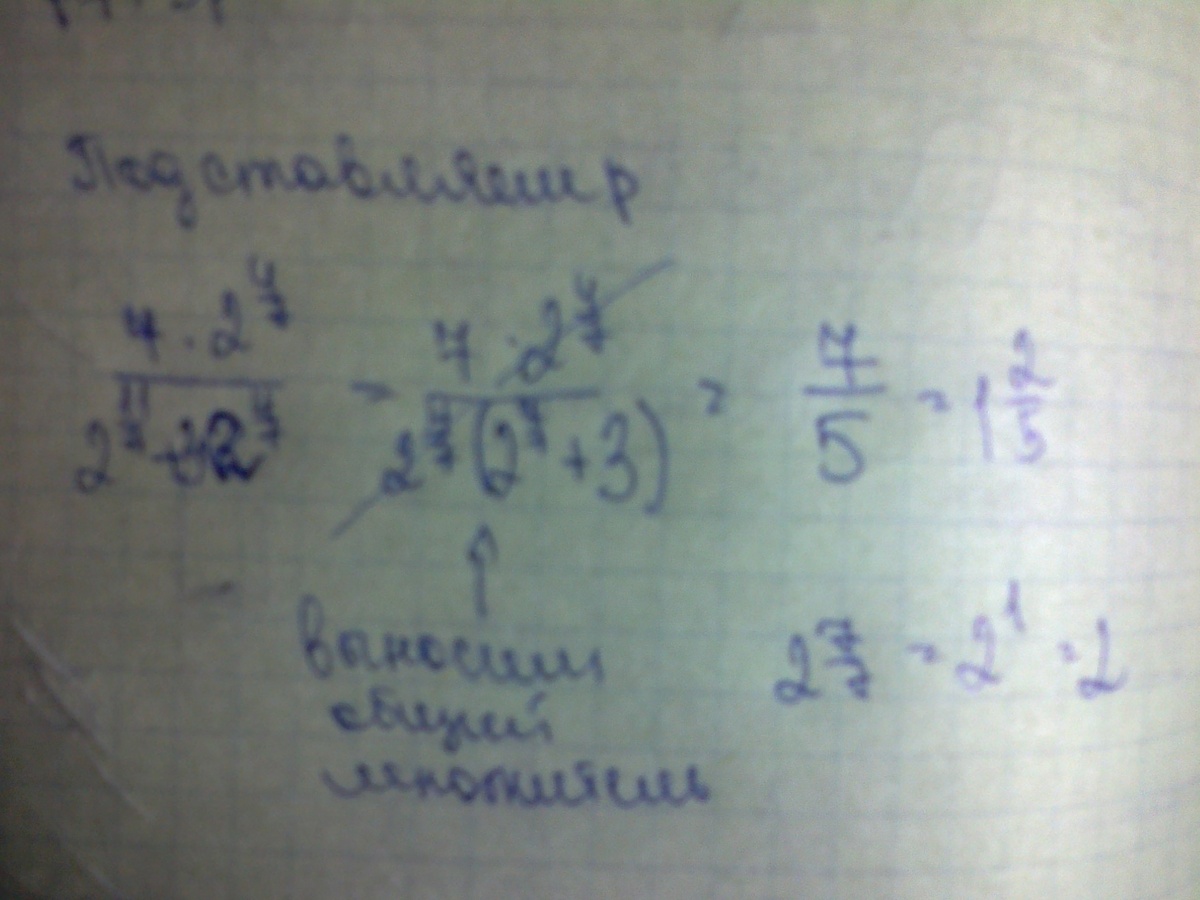 Подставляем p
7 · 2^(4/7) / (2^(11/7) + 3·2^(4/7)) = 7 · 2^(4/7) / (2^(4/7) (2^(7/7) + 3)) = 7/5 = 1 2/5
выносим
общий
множитель
2^(7/7) = 2^1 = 2